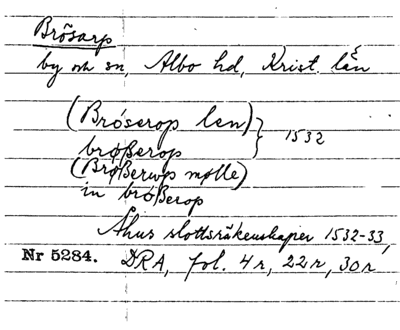 Brösarp
by och sn, Albo hd, Krist. län
(Bröserop len) } 1532
brøßerop
(Brøßerwp mølle)
in brøßerop
Åhus slottsräkenskaper 1532-33,
Nr 5284. DRA, fol. 4r, 22r, 30r